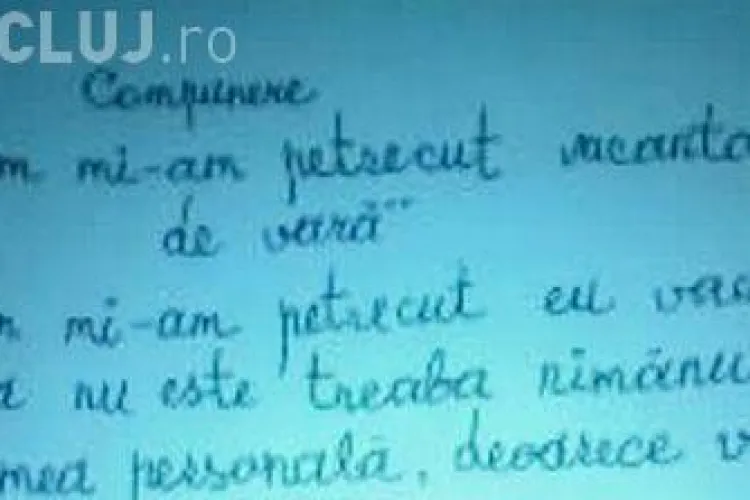 CLUJ.ro
Compunere
m mi-am petrecut vacanta
de vară"
mi-am petrecut eu vac
a nu este treaba nimănu
mea personală, deoarece v